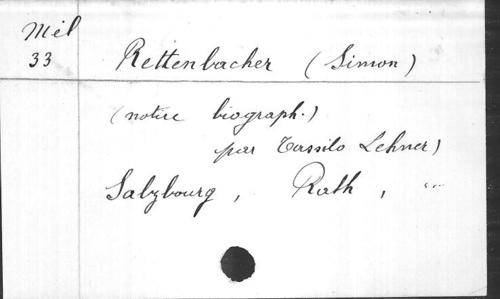 Mél
33
Rettenbacher (Simon)
(notice biograph.)
par Tassilo Lehner)
Salzbourg, Rath, "